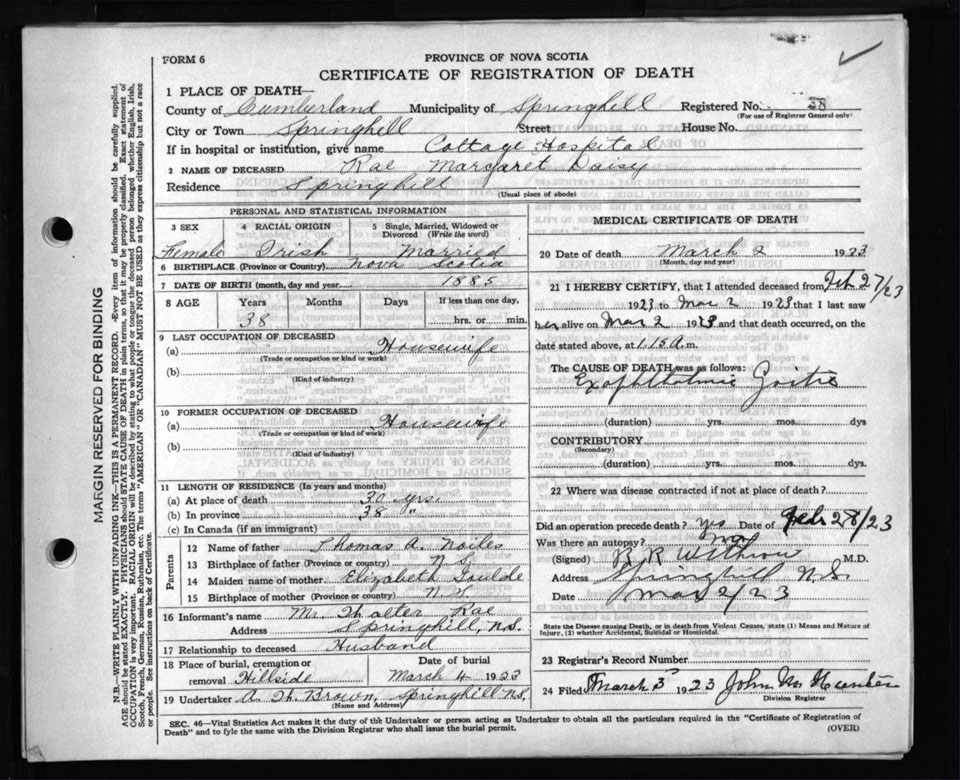 FORM 6
PROVINCE OF NOVA SCOTIA
CERTIFICATE OF REGISTRATION OF DEATH
1 PLACE OF DEATH—
County of Cumberland Municipality of Springhill Registered No. 38
(For use of Registrar General only)
City or Town Springhill Street House No.
If in hospital or institution, give name Cottage Hospital
2 NAME OF DECEASED Rae Margaret Daisy
Residence Springhill
(Usual place of abode)
PERSONAL AND STATISTICAL INFORMATION
3 SEX 4 RACIAL ORIGIN 5 Single, Married, Widowed or Divorced (Write the word)
Female Irish Married
6 BIRTHPLACE (Province or Country) Nova Scotia
7 DATE OF BIRTH (month, day and year) 1885
8 AGE Years Months Days If less than one day,
38 hrs. or min.
9 LAST OCCUPATION OF DECEASED
(a) Housewife
(Trade or occupation or kind of work)
(b)
(Kind of industry)
10 FORMER OCCUPATION OF DECEASED
(a) Housewife
(Trade or occupation or kind of work)
(b)
(Kind of industry)
11 LENGTH OF RESIDENCE (In years and months)
(a) At place of death 30 yrs.
(b) In province 38 "
(c) In Canada (if an immigrant)
Parents
12 Name of father Thomas A. Noiles
13 Birthplace of father (Province or country) N.S.
14 Maiden name of mother Elizabeth
15 Birthplace of mother (Province or country) N.S.
16 Informant's name Mr. Rae
Address Springhill, N.S.
17 Relationship to deceased Husband
18 Place of burial, cremation or removal Hillside Date of burial March 4 1923
19 Undertaker Brown, Springhill N.S.
(Name and Address)
MEDICAL CERTIFICATE OF DEATH
20 Date of death March 2 1923
(Month, day and year)
21 I HEREBY CERTIFY, that I attended deceased from Feb 27/23
1923 to Mar 2 1923 that I last saw
her alive on Mar 2 1923 and that death occurred, on the
date stated above, at 1.15 a.m.
The CAUSE OF DEATH was as follows:
Exophthalmic Goitre
(duration) yrs. mos. dys
CONTRIBUTORY
(Secondary)
(duration) yrs. mos. dys.
22 Where was disease contracted if not at place of death?
Did an operation precede death? yes Date of Feb 28/23
Was there an autopsy? no
(Signed) B R Withrow M.D.
Address Springhill N.S.
Date Mar 2/23
State the Disease causing Death, or in death from Violent Causes, state (1) Means and Nature of
Injury, (2) whether Accidental, Suicidal or Homicidal.
23 Registrar's Record Number
24 Filed March 3 1923 John M Hunter
Division Registrar
SEC. 46—Vital Statistics Act makes it the duty of the Undertaker or person acting as Undertaker to obtain all the particulars required in the "Certificate of Registration of
Death" and to fyle the same with the Division Registrar who shall issue the burial permit.
(OVER)
MARGIN RESERVED FOR BINDING
N.B.—WRITE PLAINLY WITH UNFADING INK—THIS IS A PERMANENT RECORD. Every item of information should be carefully supplied.
AGE should be stated EXACTLY. PHYSICIANS should STATE CAUSE OF DEATH in plain terms, so that it may be properly classified. Exact statement of
OCCUPATION is very important. RACIAL ORIGIN will be described by stating to what people or tongue the deceased person belonged whether English, Irish,
Scotch, French, German, Russian, Ruthenian, etc. The terms "AMERICAN" OR "CANADIAN" MUST NOT BE USED as they express citizenship but not a race
or people. See instructions on back of Certificate.